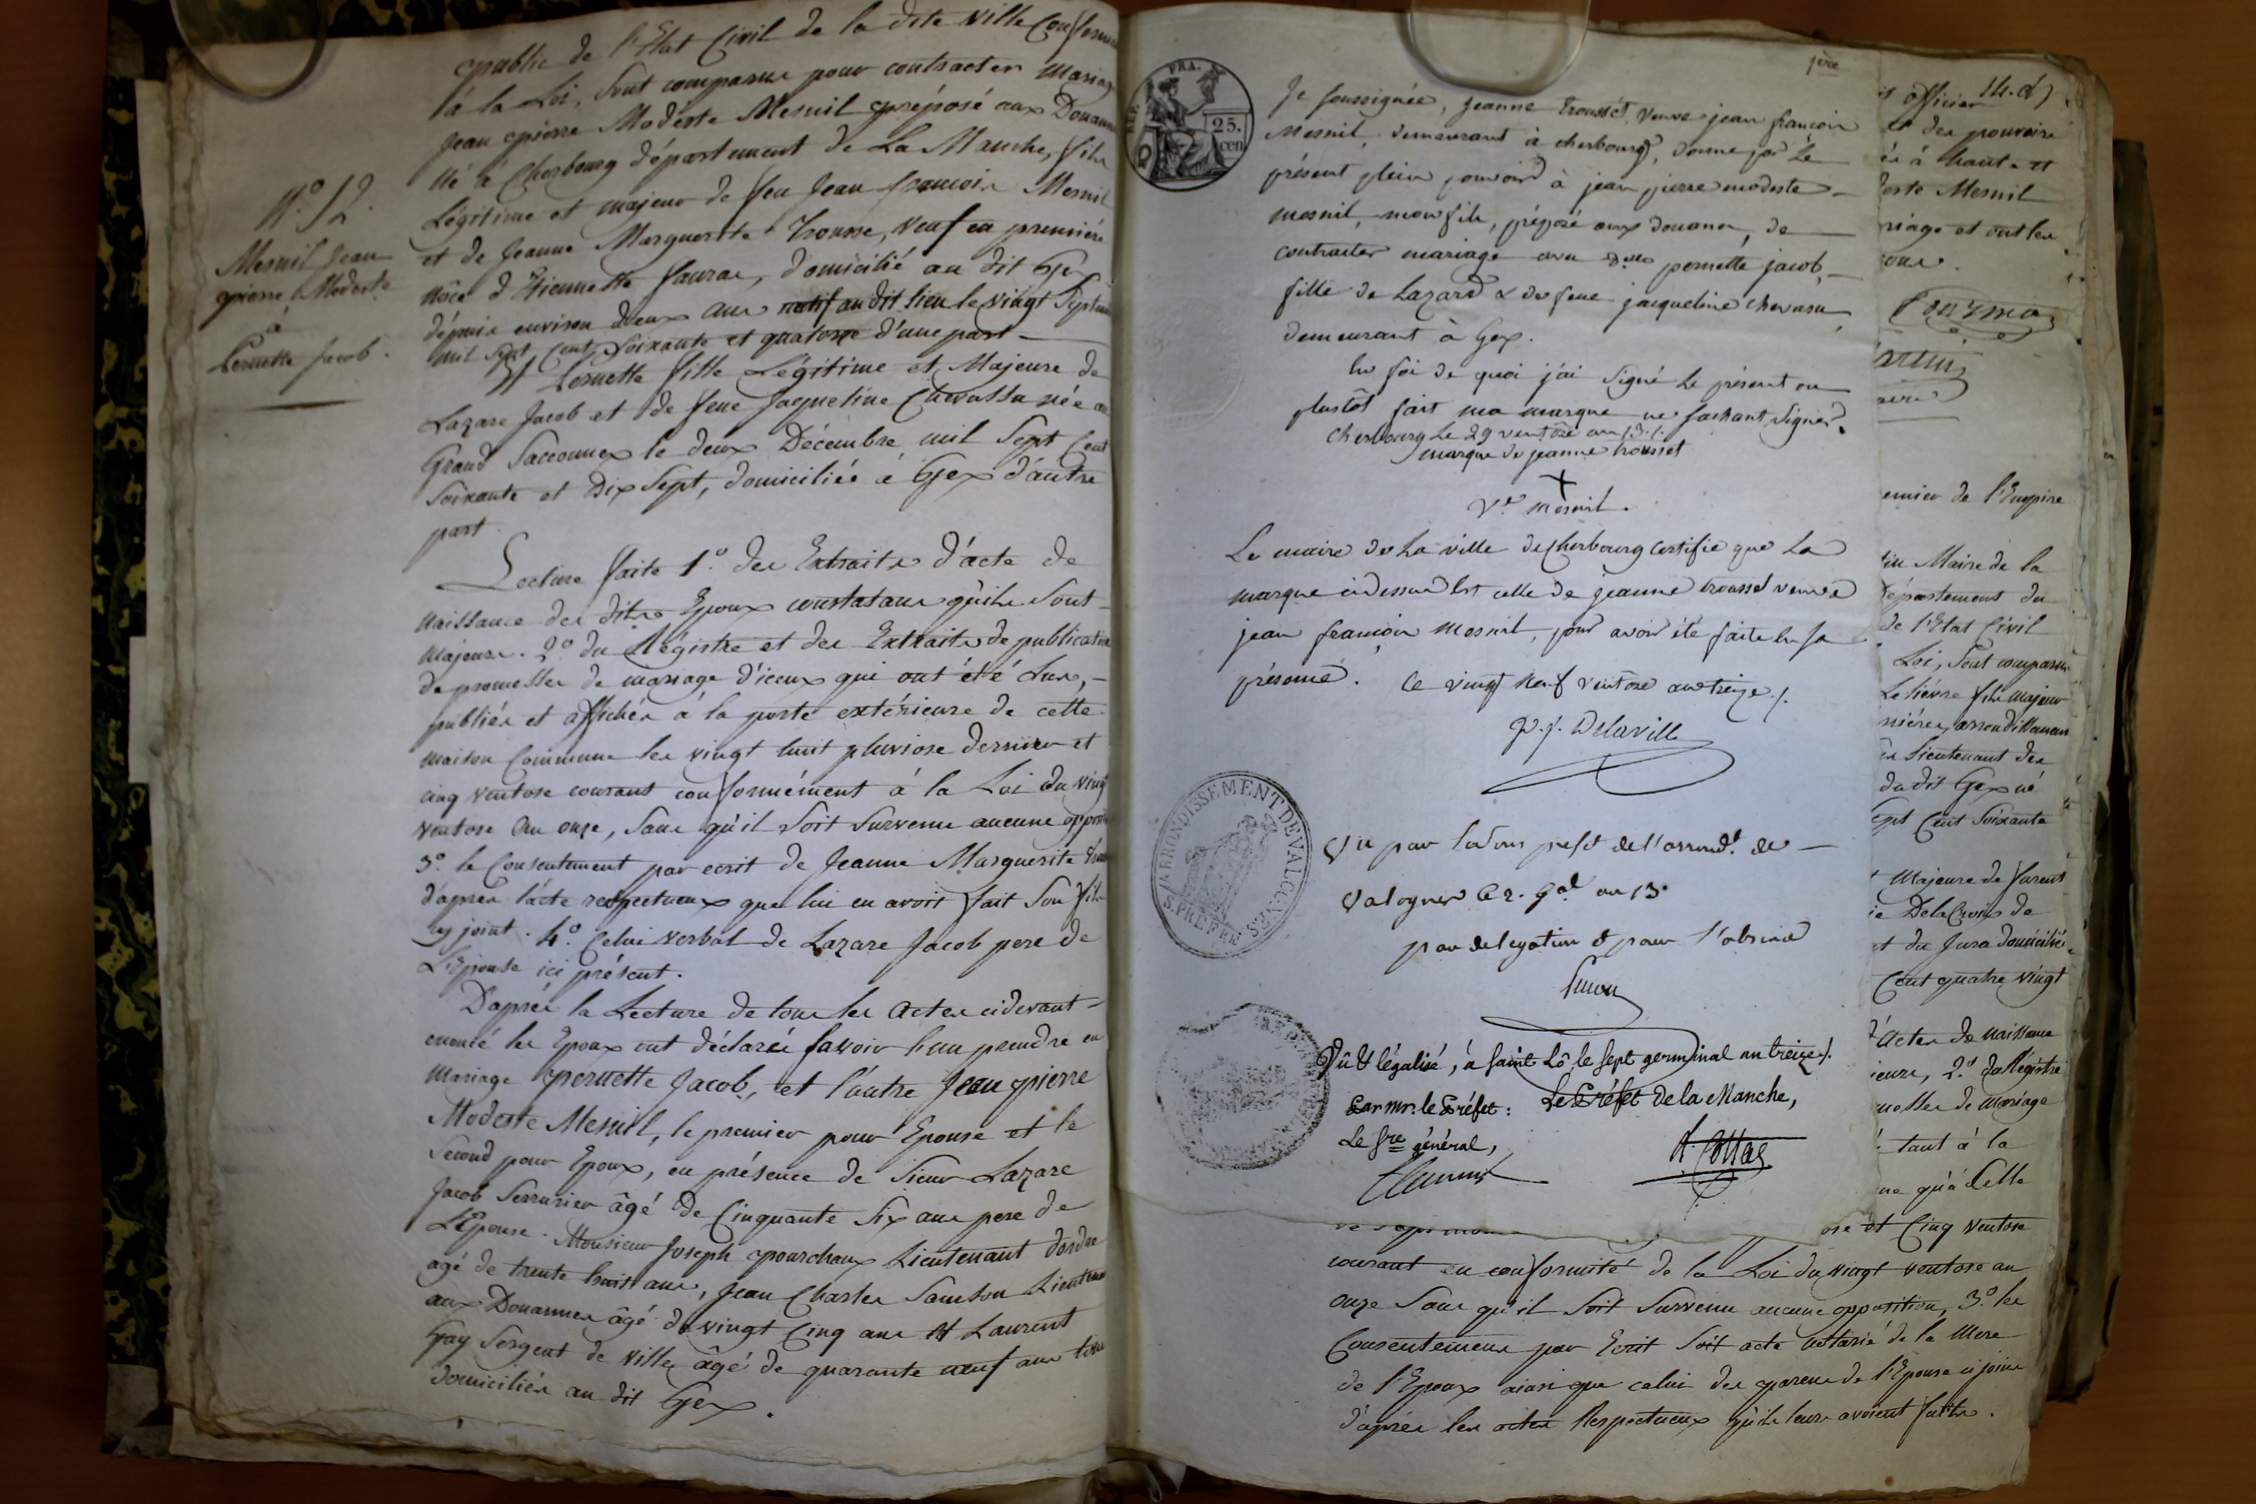 publié de l'Etat Civil de la dite ville Conformé
à la Loi, Sont comparus pour contracter Mariage
Jean pierre Modeste Mesnil préposé aux Douannes
Né à Cherbourg département de La Manche, fils
Légitime et majeur de feu Jean françois Mesnil
et de Jeanne Marguerite Trousse, veuf en premiére
Nôce d'Etiennette faurax, domicilié au dit Gex
dépuis environ deux ans natif au dit lieu le vingt Septembre
mil Sept Cent Soixante et quatorze d'une part
Et Pernette fille Légitime et Majeure de
Lazare Jacob et de feue Jaqueline Chavassu née au
Grand Sacconnex le deux Décembre mil Sept Cent
Soixante et Dix Sept, domiciliée à Gex d'autre
part.
N.º 12.
Mesnil Jean
pierre Modeste
à
Pernette Jacob.
Lecture faite 1.º des Extraits d'acte de
Naissance des dits Epoux constatans qu'ils Sont
Majeurs. 2.º du Régistre et des Extraits de publication
de promesses de mariage d'iceux qui ont été Lus,
publiés et affichés à la porte extérieure de cette
maison Commune les vingt huit pluviose dernier et
cinq ventose courant conformément à la Loi du vingt
ventose an onze, Sans qu'il Soit Survenu aucune opposi
3.º le Consentement par écrit de Jeanne Marguerite
d'aprés l'acte respectueux que lui en avoit fait Son fils
cy joint. 4.º Celui verbal de Lazare Jacob pere de
L'Epouse ici présent.
D'aprés la Lecture de tous les Actes cidevant
enoncé les Epoux ont déclaré favoir l'un prendre en
Mariage pernette Jacob, et l'autre Jean pierre
Modeste Mesnil, le premier pour Epouse et le
Second pour Epoux, en présence de Sieur Lazare
Jacob Serrurier âgé de Cinquante Six ans pere de
L'Epouse. Monsieur Joseph pourchaux Lieutenant d'ordre
agé de trente huit ans, Jean Charles Samson Lieutenant
aux Douannes âgé de vingt Cinq ans Et Laurent
Gay Sergent de ville âgé de quarante neuf ans tous
domiciliés au dit Gex.
FRA.
25.
cen
Je soussignée, jeanne Trousset, veuve jean françois
Mesnil, demeurant à cherbourg, donne par le
présent plein pouvoir à jean pierre modeste
mesnil, mon fils, préposé aux douanes, de
contracter mariage avec d.lle pernette jacob,
fille de Lazard & de feue jacqueline chevasu,
demeurant à Gex.
En foi de quoi j'ai signé le présent ou
plustôt fait ma marque ne sachant signer.
Cherbourg le 29 ventôse an 13./.
marque de jeanne trousset
V.e mesnil.
Le maire de la ville de cherbourg certifie que la
marque cidessus est celle de jeanne trousset veuve
jean françois Mesnil, pour avoir été faite en sa
présence. Ce vingt neuf ventose an treize /.
P. J. Delaville
ARRONDISSEMENT DE VALOGNES
S. PREFRE
Vu par le sous prefet de l'arrond.t de
Valognes Ce 2. g.al an 13.
par delegation & pour l'absence
Simon
Vû & légalisé, à saint Lô le sept germinal an treize /.
Par mr. le Préfet: Le Préfet de la Manche,
Le S.re général,
Costaz
1ère
officier
des pouvoirs
à haute et
Modeste Mesnil
mariage et ont les
premier de l'Empire
Maire de la
département du
de l'Etat Civil
Loi, Sont comparus
Leliévre fils majeur
arrondissement
Lieutenant des
du dit Gex né
Sept Cent Soixante
Majeure de furent
Delacroix de
du Jura domiciliée
Cent quatre vingt
d'Actes de naissance
2.º du Régistre
promesses de mariage
tant à la
qu'à Celle
et Cinq ventose
courant en conformité de la Loi du vingt ventose an
onze Sans qu'il Soit Survenu aucune opposition, 3.º les
Consentemens par Ecrit Soit acte notarié de la Mere
de l'Epoux ainsi que celui des parens de l'Epouse ci joins
d'aprés les actes Respectueux qu'ils leurs avoient faits.